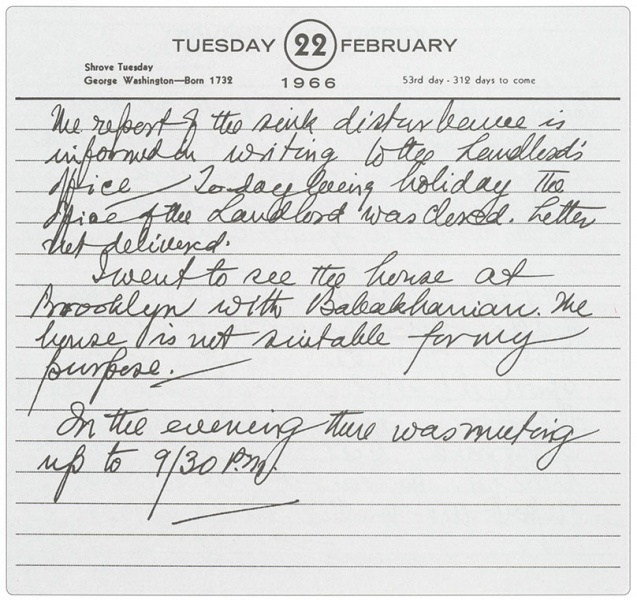 TUESDAY 22 FEBRUARY
Shrove Tuesday
George Washington—Born 1732
1966
53rd day - 312 days to come
The report of the sink disturbance is
informed in writing to the Landlord's
office — To-day being holiday the
office of the Landlord was closed. Letter
not delivered.
I went to see the house at
Brooklyn with Babakhanian. The
house is not suitable for my
purpose.
In the evening there was meeting
up to 9/30 P.M.